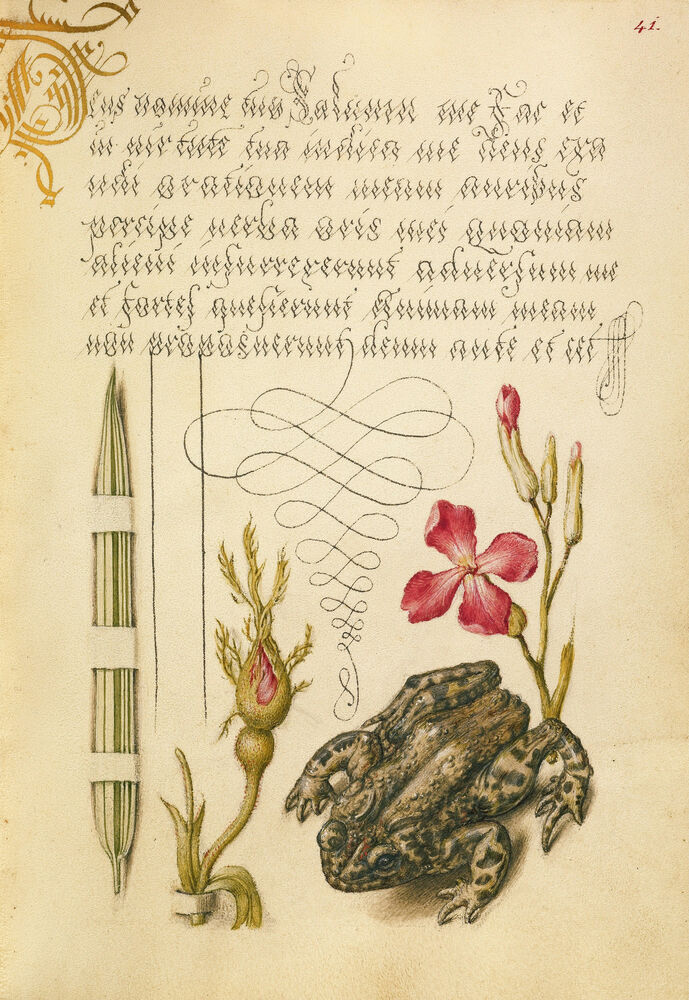 41.
Deus nomine tuo Saluum me Fac et
in uirtute tua iudica me deus exa
udi orationem meam auribus
percipe uerba oris mei Quoniam
alieni insurrexerunt aduersum me
et fortes quesierunt Animam meam
non proposuerunt deum ante et cet